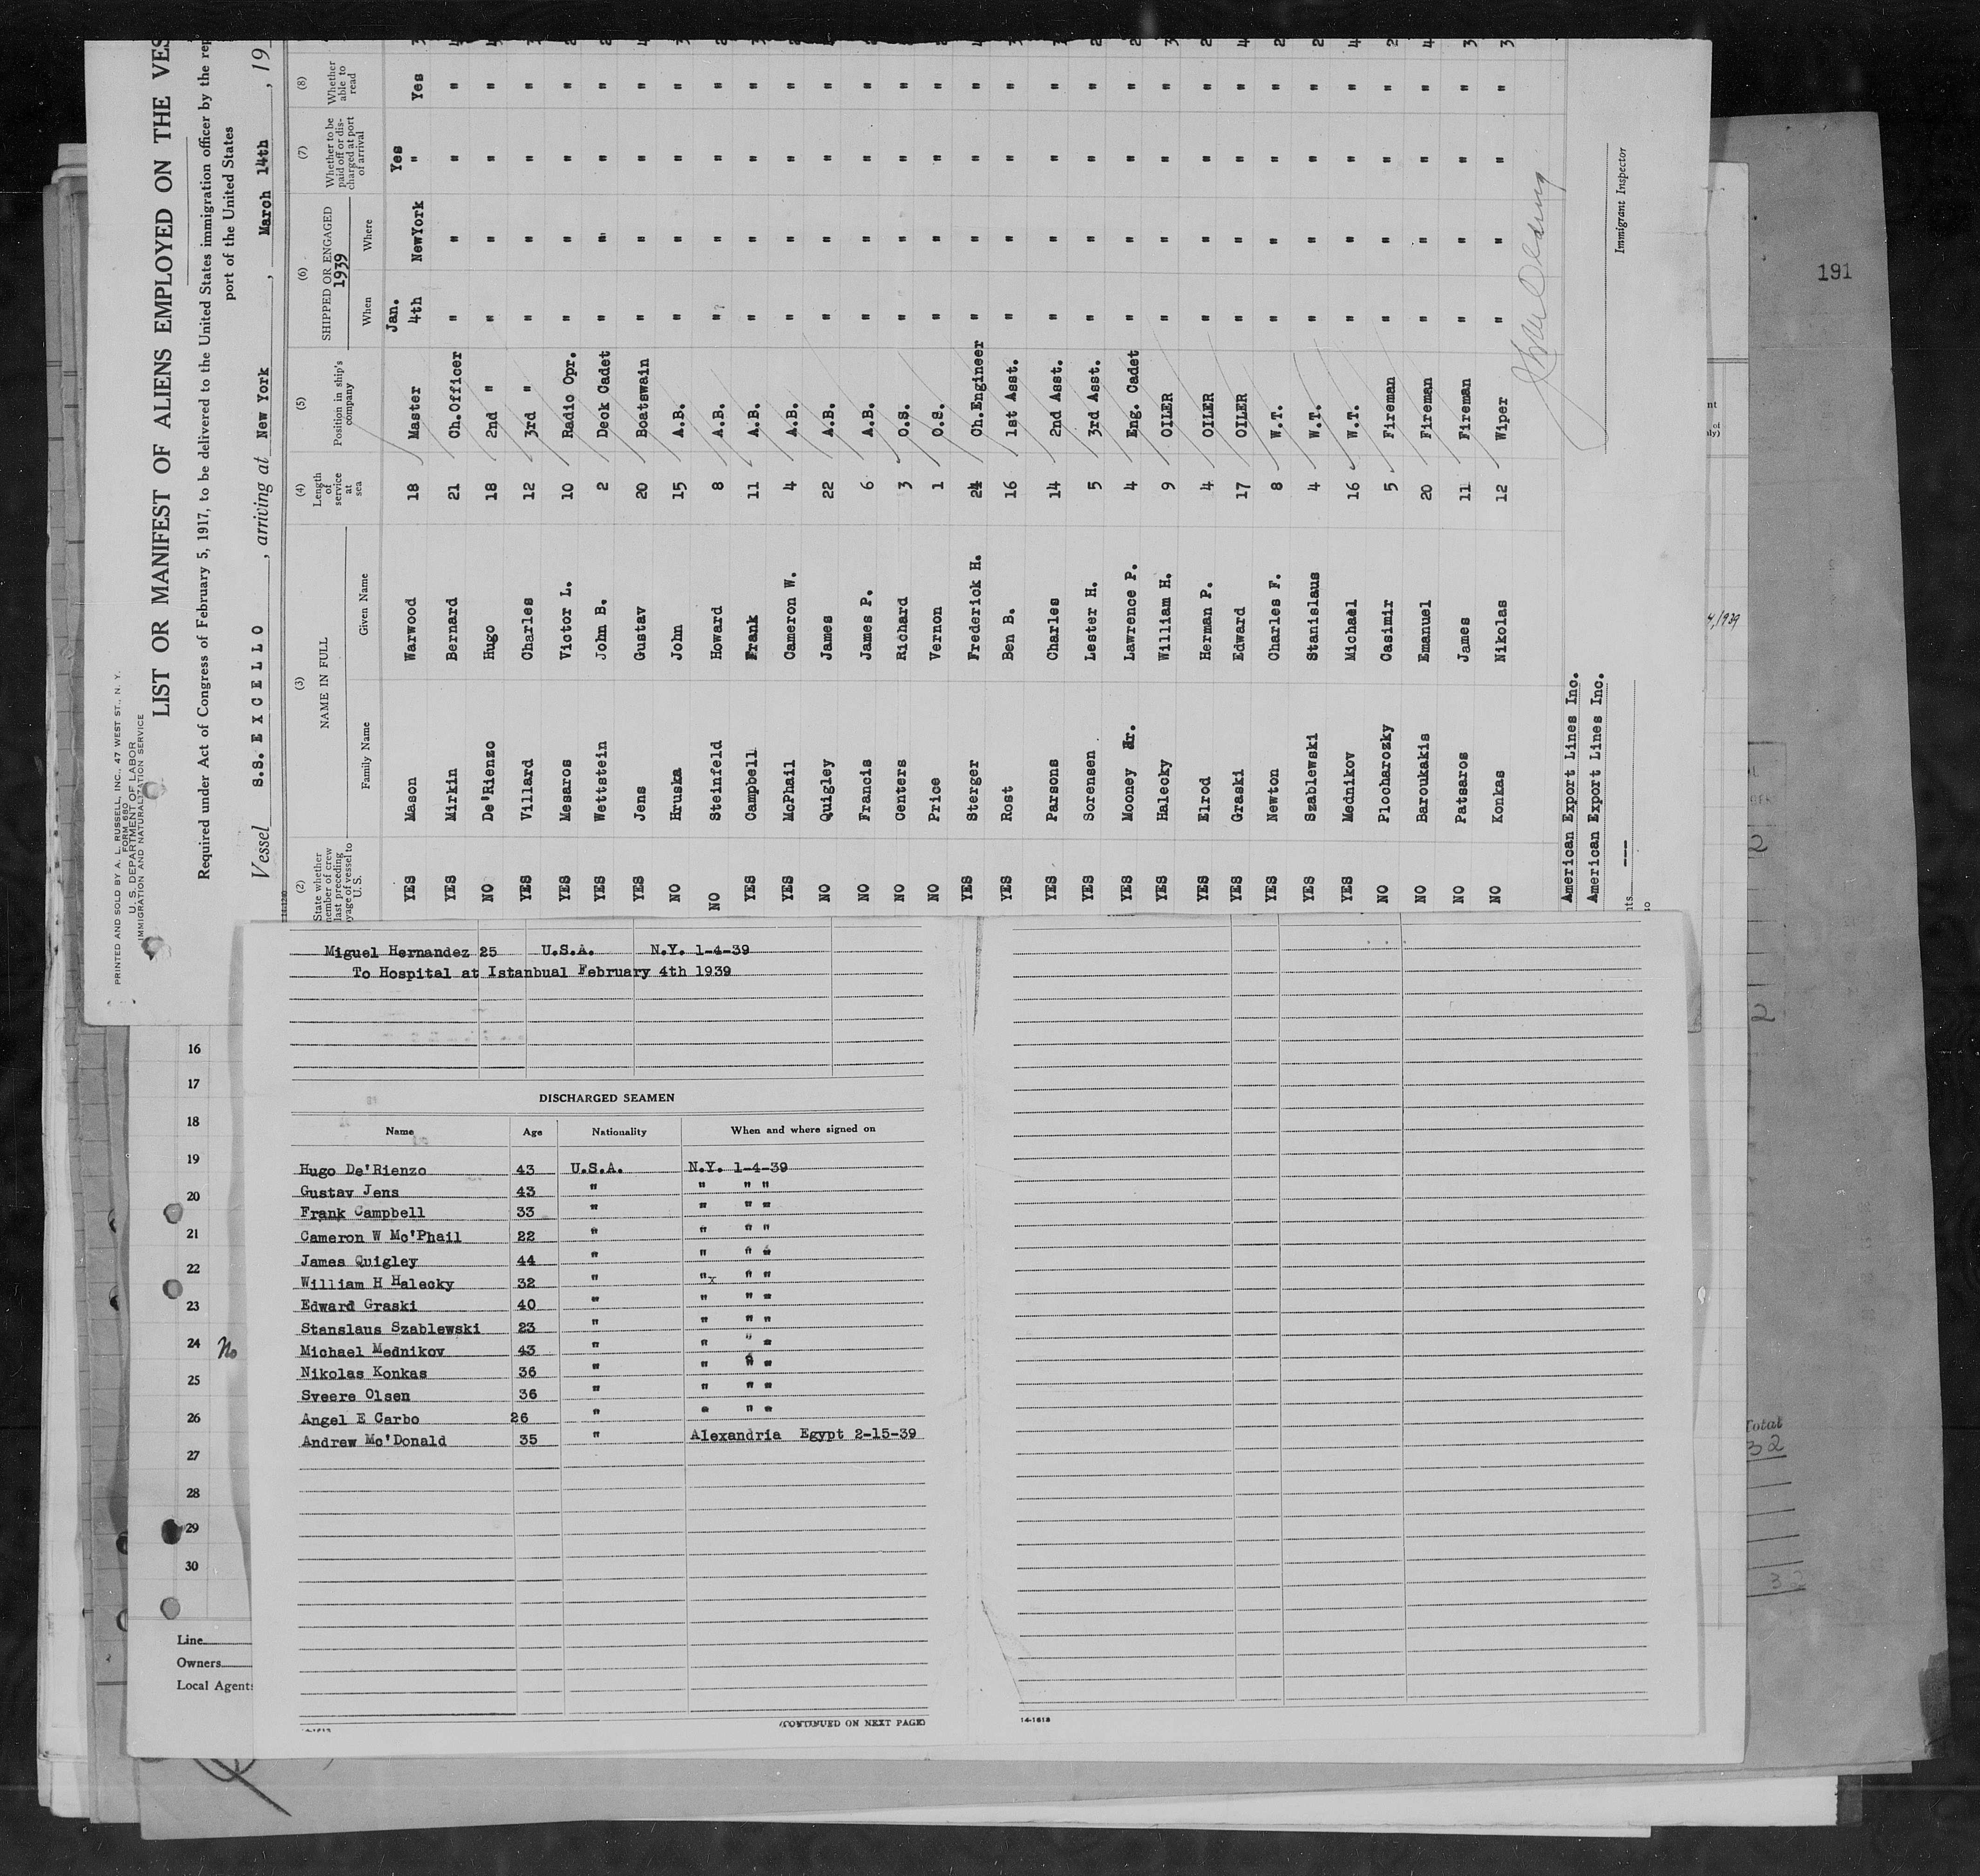 PRINTED AND SOLD BY A. L. RUSSELL, INC., 47 WEST ST., N. Y.
FORM 680
U. S. DEPARTMENT OF LABOR
IMMIGRATION AND NATURALIZATION SERVICE
LIST OR MANIFEST OF ALIENS EMPLOYED ON THE VES
Required under Act of Congress of February 5, 1917, to be delivered to the United States immigration officer by the rep
port of the United States
Vessel S.S. EXCELLO, arriving at New York, March 14th, 19
(2) (3) (4) (5) (6) (7) (8)
State whether member of crew last preceding voyage of vessel to U.S. NAME IN FULL Family Name Given Name Length of service at sea Position in ship's company SHIPPED OR ENGAGED 1939 When Where Whether to be paid off or discharged at port of arrival Whether able to read
Jan. Yes
YES Mason Warwood 18 Master 4th NewYork " Yes
YES Mirkin Bernard 21 Ch.Officer " " " "
NO De'Rienzo Hugo 18 2nd " " " " "
YES Villard Charles 12 3rd " " " " "
YES Mesaros Victor L. 10 Radio Opr. " " " "
YES Wettstein John B. 2 Deck Cadet " " " "
YES Jens Gustav 20 Boatswain " " " "
NO Hruska John 15 A.B. " " " "
NO Steinfeld Howard 8 A.B. " " " "
YES Campbell Frank 11 A.B. " " " "
YES McPhail Cameron W. 4 A.B. " " " "
NO Quigley James 22 A.B. " " " "
NO Francis James P. 6 A.B. " " " "
NO Centers Richard 3 O.S. " " " "
NO Price Vernon 1 O.S. " " " "
YES Sterger Frederick H. 24 Ch.Engineer " " " "
YES Rost Ben B. 16 1st Asst. " " " "
YES Parsons Charles 14 2nd Asst. " " " "
YES Sorensen Lester H. 5 3rd Asst. " " " "
YES Mooney Jr. Lawrence P. 4 Eng. Cadet " " " "
YES Halecky William H. 9 OILER " " " "
YES Elrod Herman P. 4 OILER " " " "
YES Graski Edward 17 OILER " " " "
YES Newton Charles F. 8 W.T. " " " "
YES Szablewski Stanislaus 4 W.T. " " " "
YES Mednikov Michael 16 W.T. " " " "
NO Plocharozky Casimir 5 Fireman " " " "
NO Baroukakis Emanuel 20 Fireman " " " "
NO Patsaros James 11 Fireman " " " "
NO Konkas Nikolas 12 Wiper " " " "
American Export Lines Inc.
American Export Lines Inc.
Immigrant Inspector
191
Miguel Hernandez 25 U.S.A. N.Y. 1-4-39
To Hospital at Istanbual February 4th 1939
DISCHARGED SEAMEN
Name Age Nationality When and where signed on
Hugo De'Rienzo 43 U.S.A. N.Y. 1-4-39
Gustav Jens 43 " " " "
Frank Campbell 33 " " " "
Cameron W Mc'Phail 22 " " " "
James Quigley 44 " " " "
William H Halecky 32 " " " "
Edward Graski 40 " " " "
Stanslaus Szablewski 23 " " " "
Michael Mednikov 43 " " " "
Nikolas Konkas 36 " " " "
Sveere Olsen 36 " " " "
Angel E Carbo 26 " " " "
Andrew Mc'Donald 35 " Alexandria Egypt 2-15-39
(CONTINUED ON NEXT PAGE)
14-1618
16
17
18
19
20
21
22
23
24 No
25
26
27
28
29
30
Line
Owners
Local Agents
4, 1939
2
2
Total
32